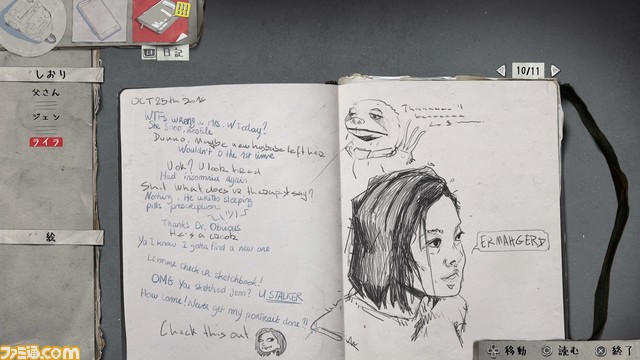 日記
しおり
父さん
ジェン
ライラ
絵
10/11
OCT 25th
WTF's wrong w Mrs. W today?
She's so
Dunno. Maybe new husband left her
Wouldn't b the 1st time
U ok? U look dead
Had insomnia again
Shit what does ur therapist say?
Nothing. He writes sleeping
pills prescription
Thanks Dr. Obvious
He's a
Ya I know I gotta find a new one
Lemme check ur sketchbook!
OMG you sketched Jenn? U STALKER
How come I never get my portrait done?!
Check this out
ERMAHGERD
移動
読む
終了
ファミ通.com